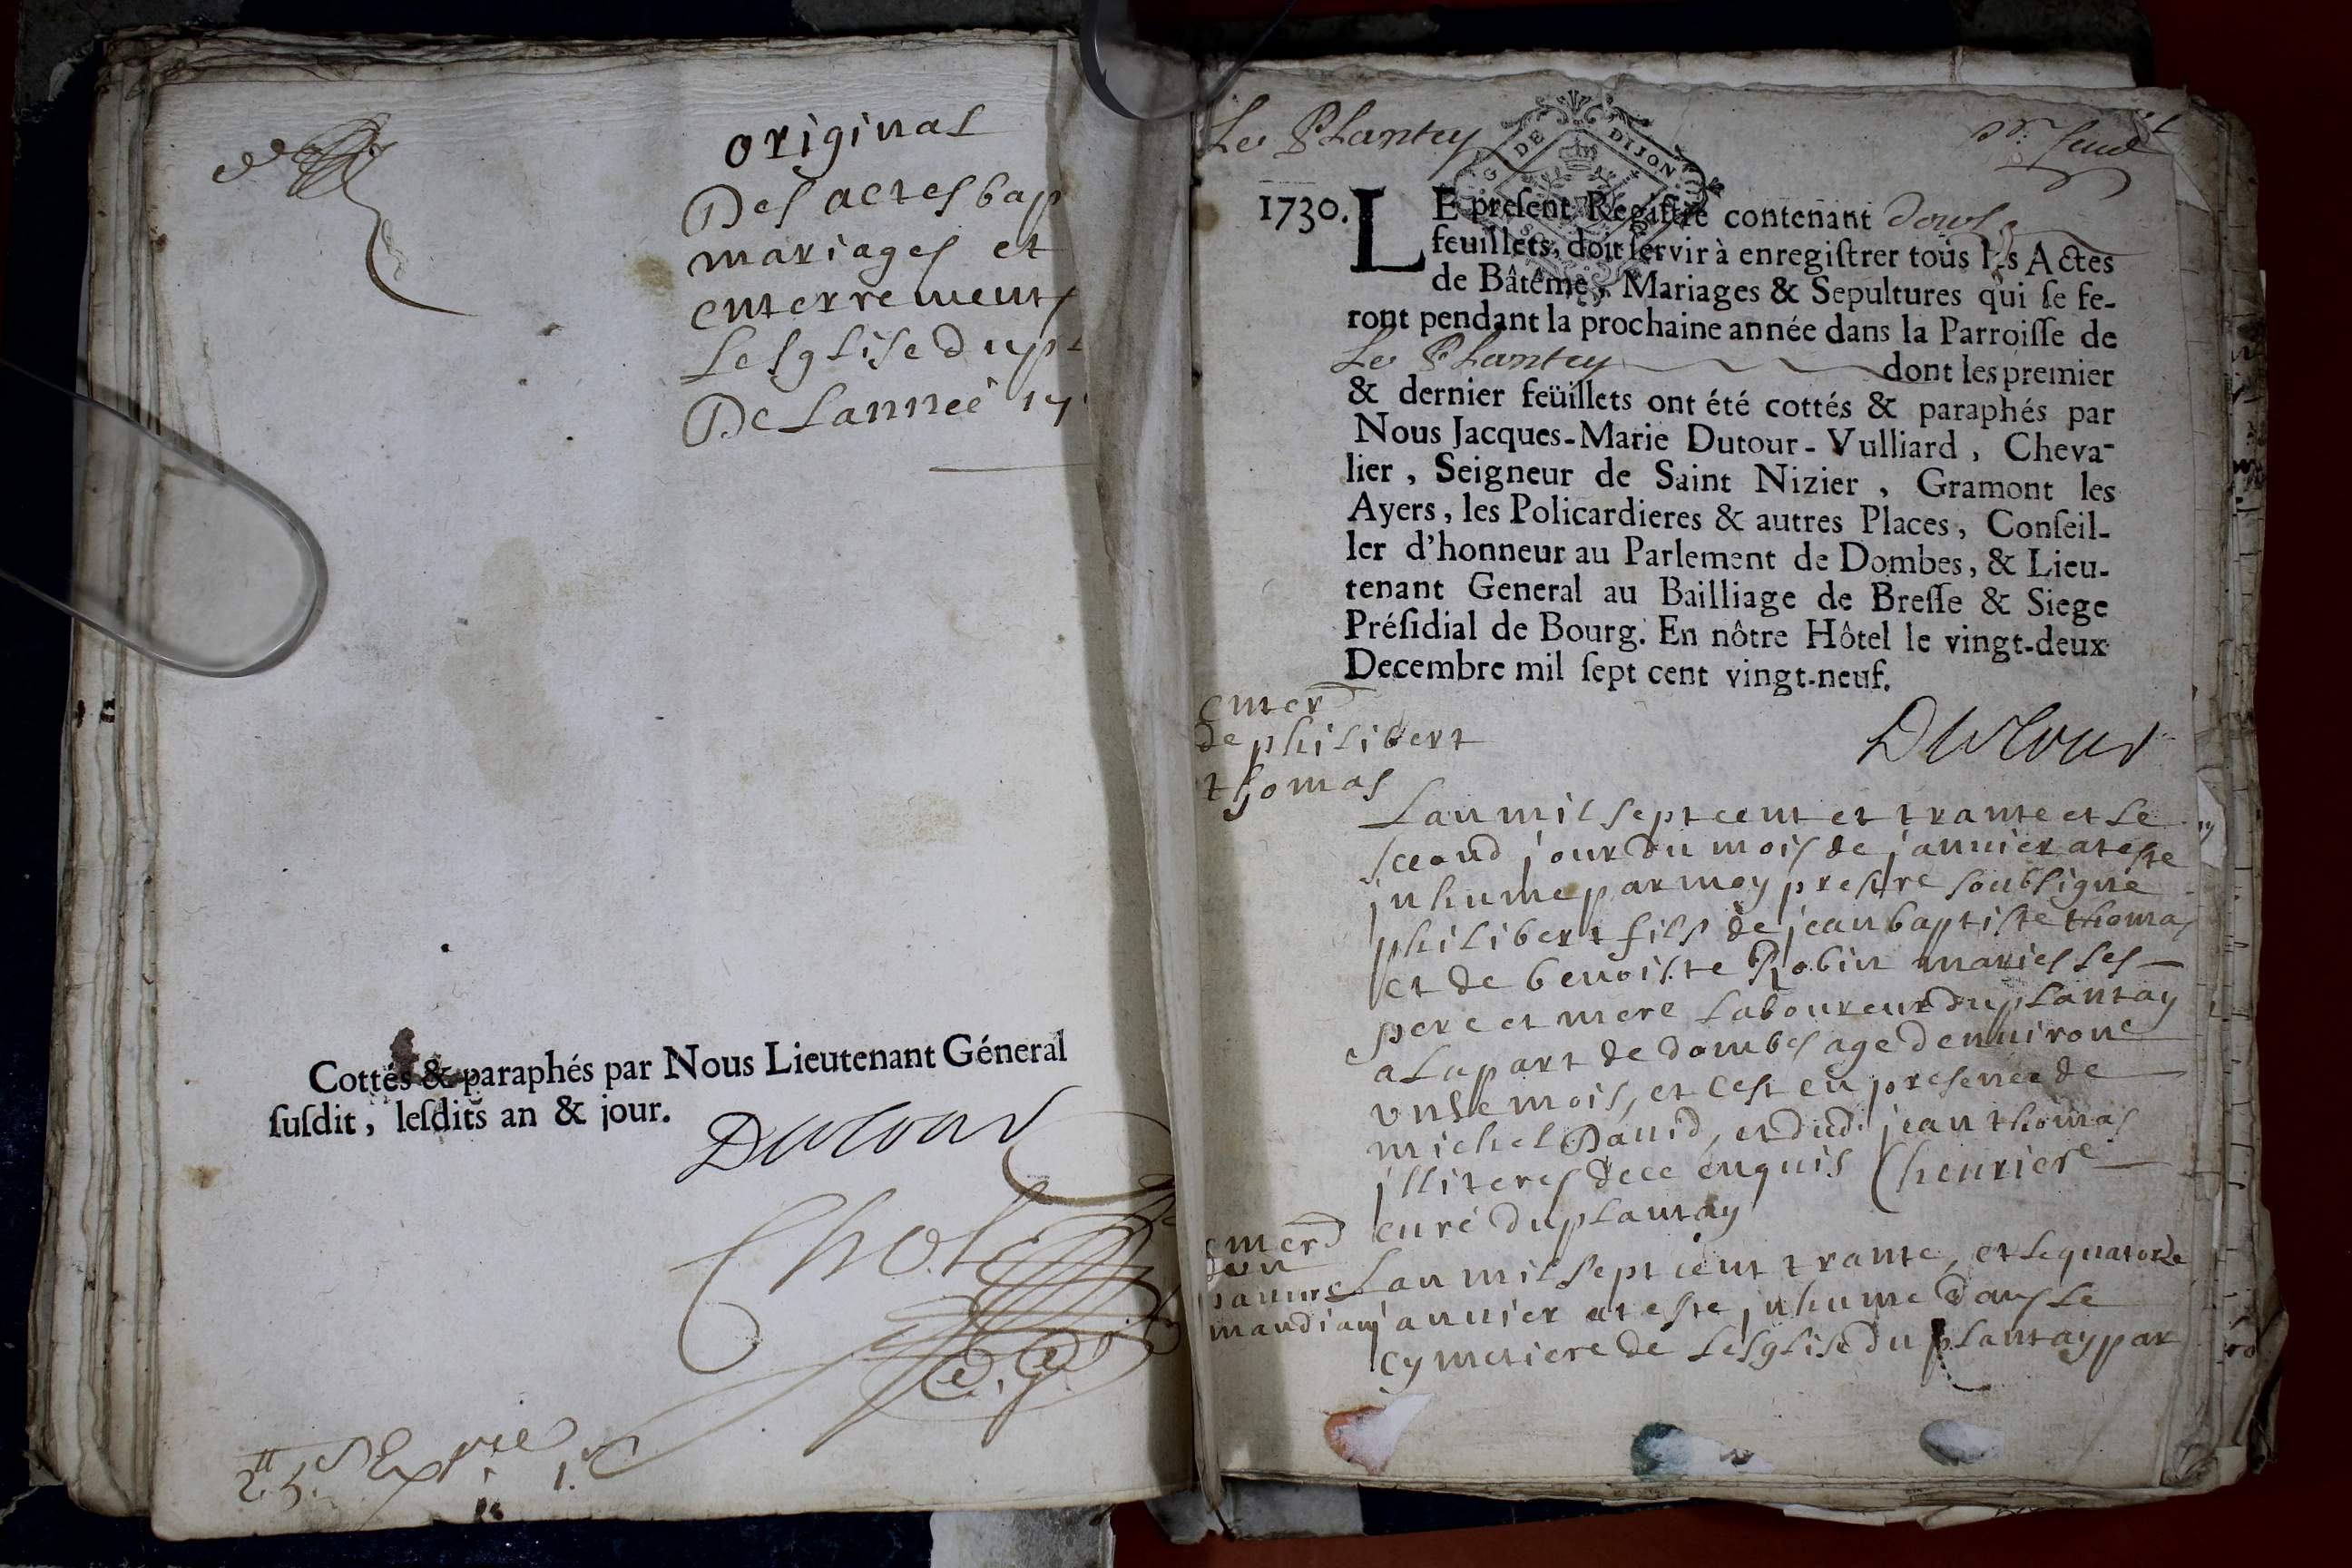 original
Des actes bap
mariages et
enterrements
Lesglise du pl
De Lannee 17
Cottés & paraphés par Nous Lieutenant Géneral
suſdit, leſdits an & jour.
Dutour
Cholet
Le Plantey
Pr. feuet
G DE DIJON
1730. LE preſent Regiſtre contenant douſe
feuillets, doit ſervir à enregiſtrer toüs les Actes
de Bâtême, Mariages & Sepultures qui ſe fe-
ront pendant la prochaine année dans la Parroiſſe de
Le Plantey dont les premier
& dernier feüillets ont été cottés & paraphés par
Nous Jacques-Marie Dutour-Vulliard, Cheva-
lier, Seigneur de Saint Nizier, Gramont les
Ayers, les Policardieres & autres Places, Conſeil-
ler d'honneur au Parlement de Dombes, & Lieu-
tenant General au Bailliage de Breſſe & Siege
Préſidial de Bourg. En nôtre Hôtel le vingt-deux
Decembre mil ſept cent vingt-neuf.
Dutour
enter
de philibert
thomas
Lan mil sept cent et trante et le
second jour du mois de januier at este
inhume par moy prestre soubsigne
philibert fils de jean baptiste thomas
et de benoiste Robin maries ses
pere et mere Laboureur du plantay
a la part de dombes age denuirone
unse mois, et cest en presence de
michel Dauid, et dud. jean thomas
illiteres de ce enquis Chenriere
curé du plantay
enter
dun
pauure
mandiant
Lan mil sept cent trante, et le quatorse
januier at este inhume dans le
cymetiere de Lesglise du plantay par